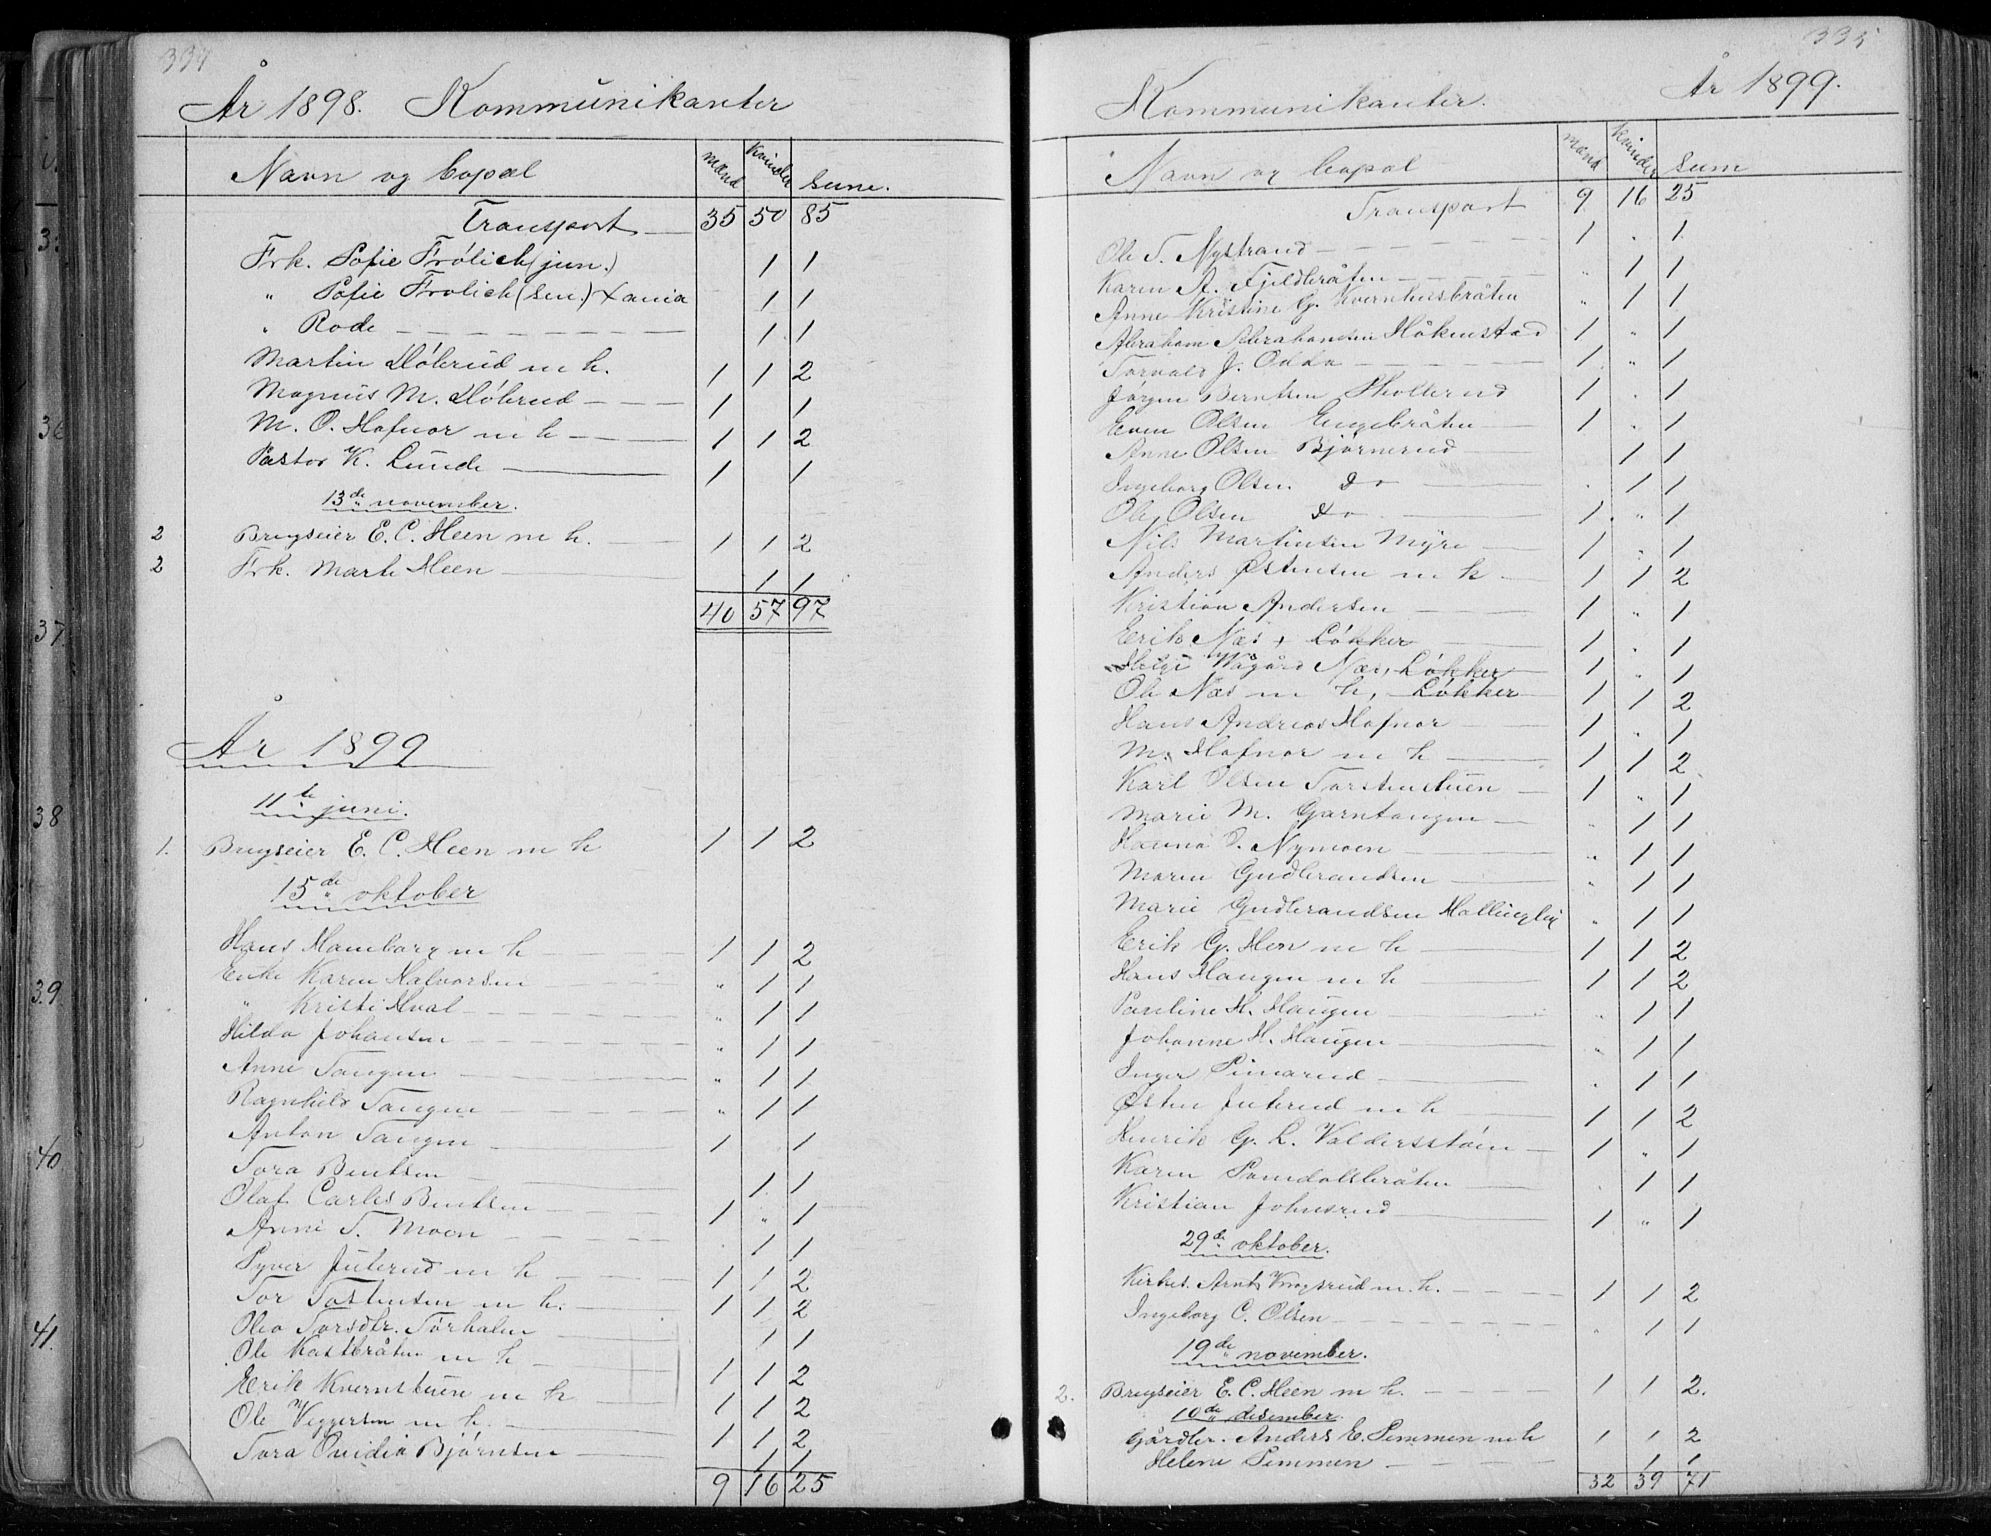 334
År 1898. Kommunikanter
Navn og bopæl mænd kvinder sum.
Transport 35 50 85
Frk. Sofie Frölich (jun.) 1 1
" Sofie Frölich (sen.) Xania 1 1
" Rode 1 1
Martin Döbrud m h. 1 1 2
Magnus M. Döbrud 1 1
M. O. Hofnor m h 1 1 2
Pastor K. Lunde 1 1
13de november.
2 Brugseier E. C. Heen m h. 1 1 2
2 Frk. Marte Heen 1 1
40 57 97
År 1899
11te juni.
1. Brugseier E. C. Heen m h 1 1 2
15de oktober
Hans Hamborg m h 1 1 2
Enke Karen Halvorsen " 1 1
" Kristi Hval " 1 1
Hilda Johansen " 1 1
Anne Tangen " 1 1
Ragnhild Tangen " 1 1
Anton Tangen 1 1
Tora Bentsen 1 1
Olaf Carlss Bentsen 1 " 1
Anne T. Moen 1 1
Syver Juterud m h 1 1 2
Tor Tostensen m h. 1 1 2
Olea Torsdtr. Törhalen 1 1
Ole Kastbråten m h 1 1 2
Erik Kvernstuen m h 1 1 2
Ole Veggersen m h. 1 1 2
Tora Ovidia Björnsen 1 1
9 16 25
335
Kommunikanter. År 1899.
Navn og bopæl mænd kvinder sum
Transport 9 16 25
Ole T. Nystrand 1 . 1
Karen A. Fjeldbråten " 1 1
Anne Kristine G. Kvernhusbråten " 1 1
Abraham Abrahamsen Håkenstad 1 " 1
Torvald J. Odda 1 " 1
Jörgen Berntsen Skollerud 1 . 1
Even Olsen Engebråten 1 . 1
Anne Olsen Björnerud 1 1
Ingeborg Olsen Do . 1 1
Ole Olsen Do 1 " 1
Nils Martinsen Myre 1 . 1
Anders Østensen m h 1 1 2
Kristian Andersen 1 " 1
Erik Næs, Løkker 1 . 1
Helge Vågård Næs, Løkker 1 . 1
Ole Næs m h, Løkker 1 1 2
Hans Andreas Hofnor 1 . 1
M. Hofnor m h 1 1 2
Karl Olsen Torstenstuen 1 " 1
Marie M. Garntangen " 1 1
Hanna P. Nymoen " 1 1
Maren Gudbrandsen " 1 1
Marie Gudbrandsen Hallingby " 1 1
Erik G. Hen m h 1 1 2
Hans Haugen m h 1 1 2
Pauline H. Haugen " 1 1
Johanne H. Haugen " 1 1
Inger Simarud . 1 1
Østen Juterud m h 1 1 2
Henrik G. L. Valdersstöen 1 " 1
Karen Samdalsbråten . 1 1
Kristian Johnsrud 1 " 1
29de oktober.
Kirkes. Arnt Krogsrud m. h. 1 1 2
Ingeborg C. Olsen " 1 1
19de november.
2. Brugseier E. C. Heen m h. 1 1 2.
10de desember.
Gårdbr. Anders E. Semmen m h 1 1 2
Helene Semmen 1 1
32 39 71
36
37.
38
39.
40
41.